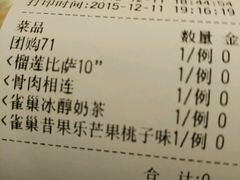 打印时间:2015-12-11 19:16:19
菜品 数量 金
团购71 1/例 0
<榴莲比萨10" 1/例 0
<骨肉相连 1/例 0
<雀巢冰醇奶茶 1/例 0
<雀巢昔果乐芒果桃子味1/例 0
合计:0